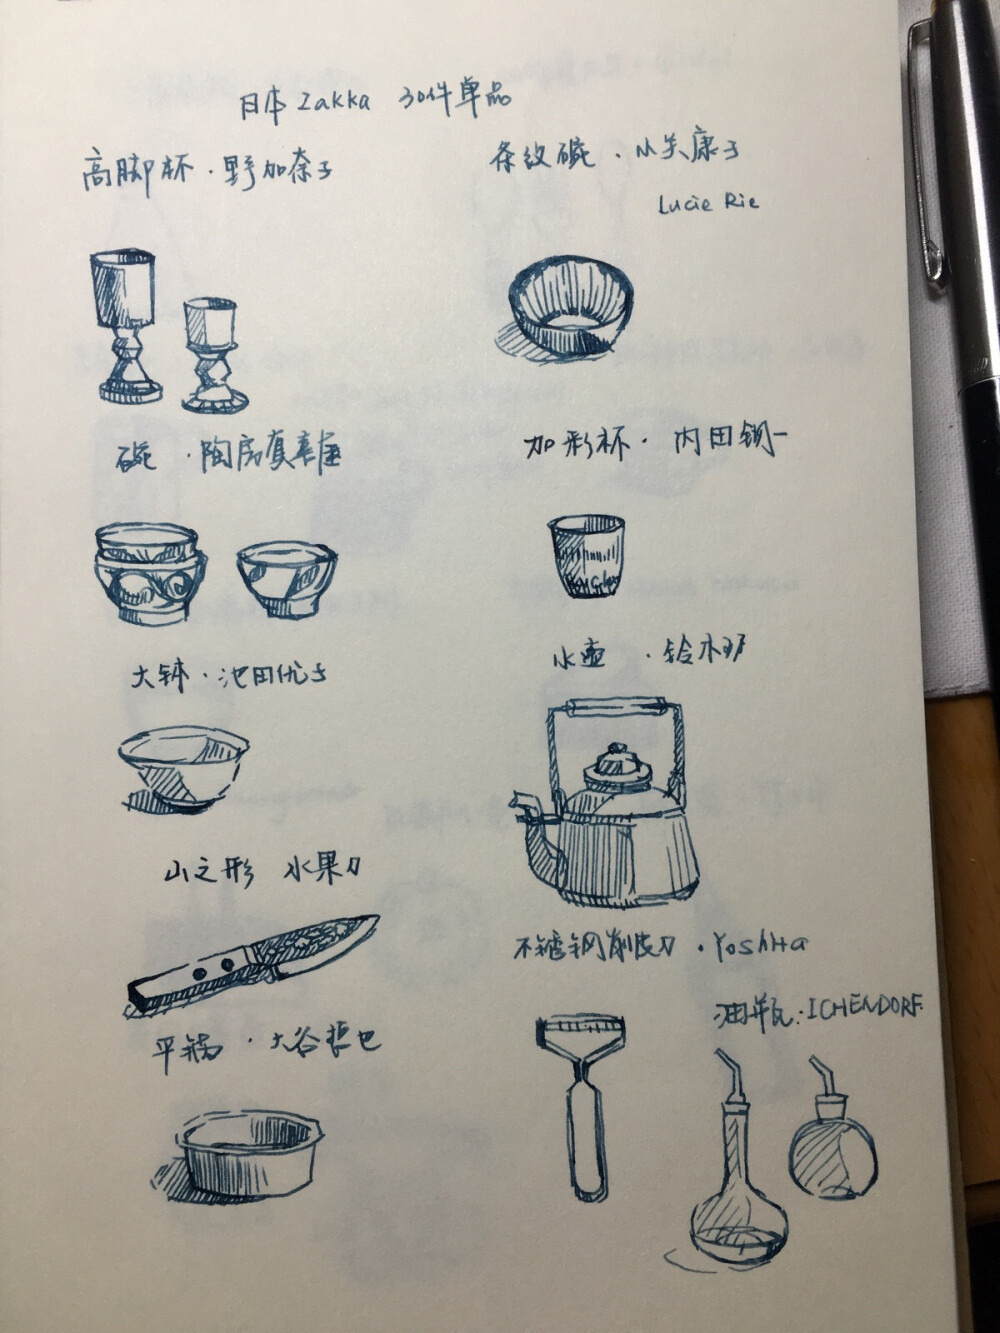 日本 Zakka 30件单品
高脚杯·野加奈子
条纹碗·小关康子
Lucie Rie
碗·陶房真喜
加彩杯·内田钢一
大钵·池田优子
水壶·铃木
山之形 水果刀
不锈钢削皮刀·Yoshita
油瓶:ICHENDORF.
平锅·大谷哲也